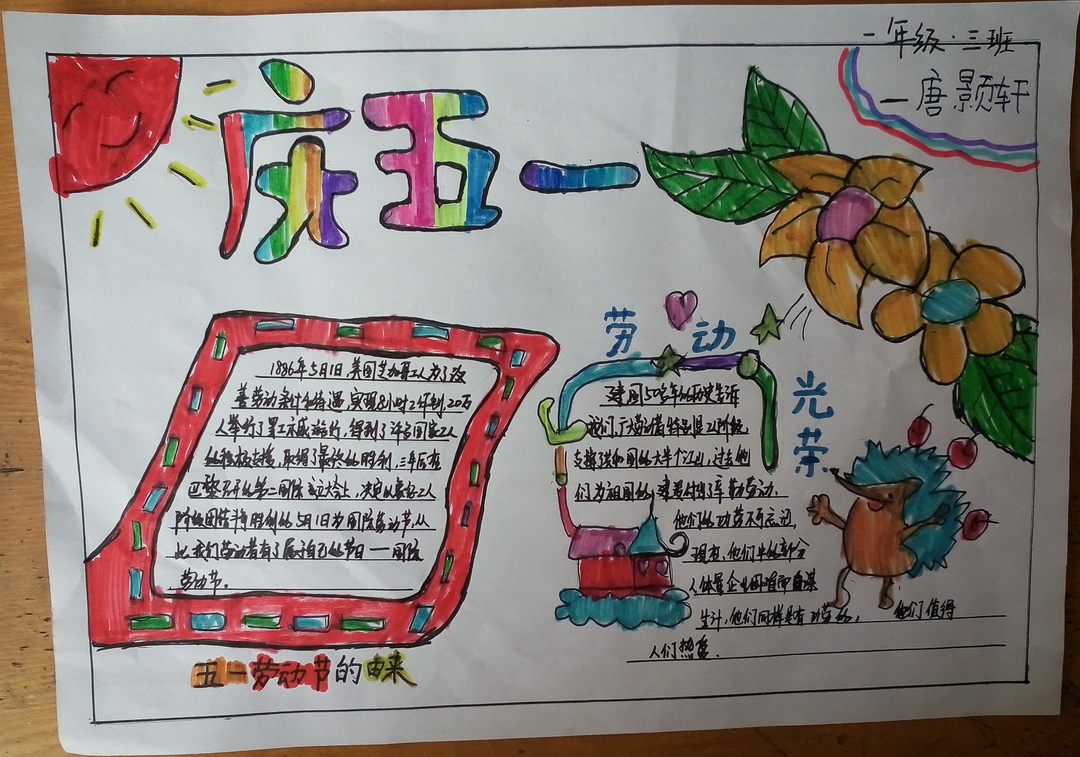 一年级·三班
一唐颢轩
庆五一
1886年5月1日,美国芝加哥工人为了改
善劳动条件和待遇,实现8小时工作制,20万
人举行了罢工示威游行,得到了许多国家工人
的积极支援,取得了最终的胜利,三年后在
巴黎召开的第二国际成立大会上,决定以象征工人
阶级团结斗争胜利的5月1日为国际劳动节,从
此我们劳动者有了属于自己的节日——国际
劳动节。
五一劳动节的由来
劳动
光荣
建国50多年的历史告诉
我们,广大劳动者特别是工人阶级,
支撑我们国的大半个江山,过去他
们为祖国的建设付出了辛勤劳动,
他们的功劳不可忘记,
现在,他们中的部分
人体量企业困难而自谋
生计,他们同样是有功劳的, 他们值得
人们热爱.